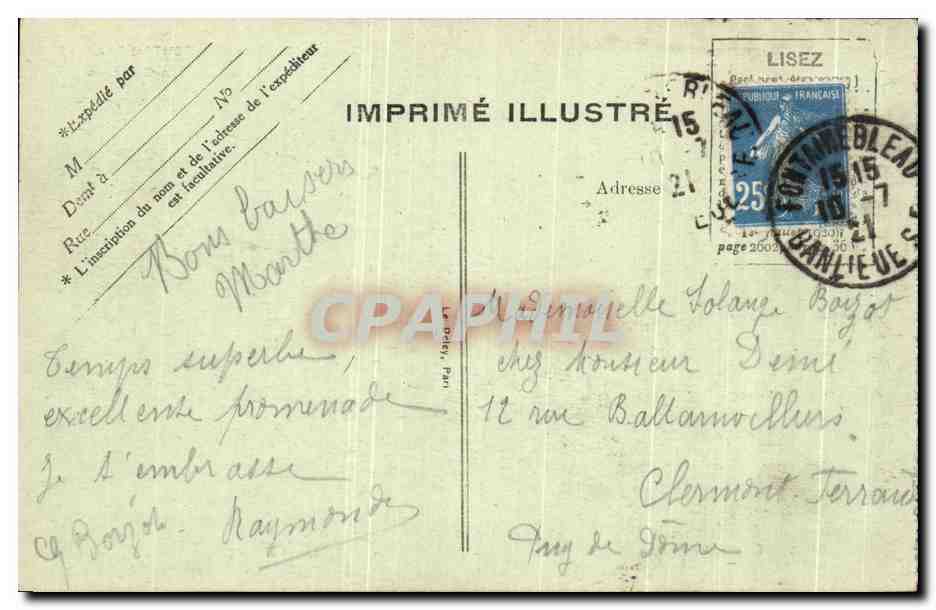 *Expédié par
M
Demt à No
Rue
* L'inscription du nom et de l'adresse de l'expéditeur
est facultative.
IMPRIMÉ ILLUSTRÉ
Adresse
LISEZ
RÉPUBLIQUE FRANÇAISE
25c
15
21
FONTAINEBLEAU
15 15
10 -7
21
BANLIEUE S
page 2002
Bons baisers
Marthe
Temps superbe,
excellente promenade
Je t'embrasse
Raymonde
Mademoiselle Solange
chez Monsieur Demé
12 rue
Clermont-Ferrand
Puy de Dôme
Le Deley, Pari
CPAPHIL